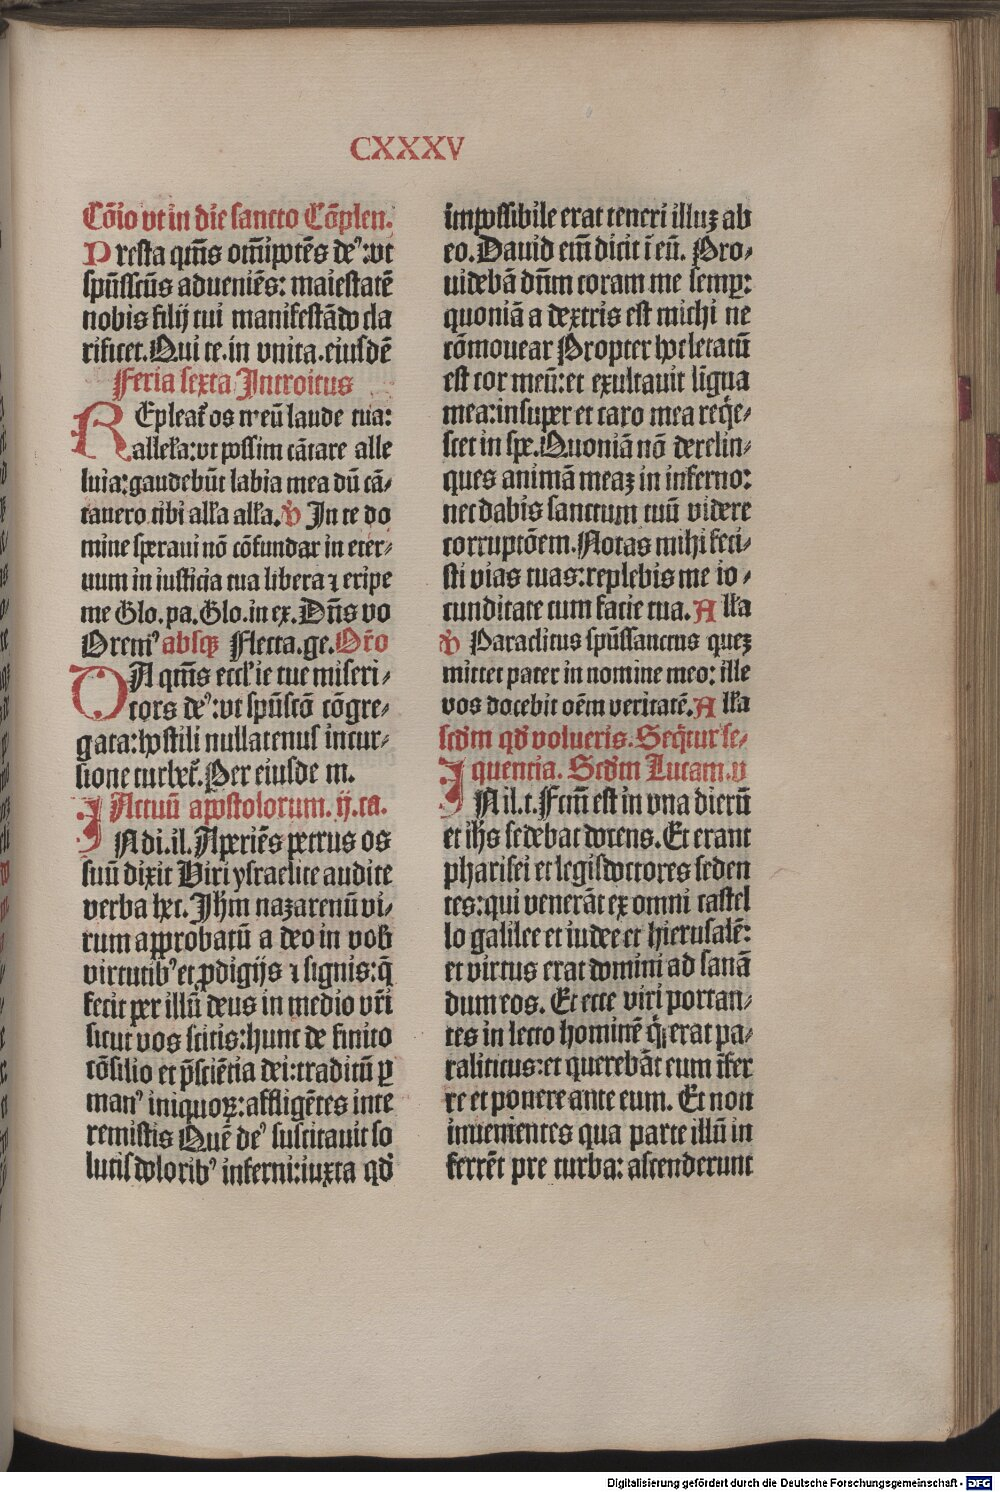 CXXXV
Cōio vt in die sancto Cōplen.
Presta qms̄ om̄ipotēs deꝰ:vt
spūsscūs adueniēs: maiestatē
nobis filij tui manifestādo cla
rificet.Qui te.in vnita.eiusdē
Feria sexta Introitus
REpleat̄ os meū laude tua:
alleła:vt possim cātare alle
luia:gaudebūt labia mea dū cā⸗
tauero tibi ałła ałła.℣ In te do
mine speraui nō cōfundar in eter⸗
num in iusticia tua libera ⁊ eripe
me Glo.pa.Glo.in ex.Dn̄s vo
Oremꝰ absqꝫ Flecta.ge.Or̄o
DA qms̄ eccł'ie tue miseri⸗
cors deꝰ:vt spūscō cōgre⸗
gata:hostili nullatenus incur⸗
sione turbet̄.Per eiusde m.
Actuū apostolorum.ij.ca.
IN di.il.Aperiēs petrus os
suū dixit Viri ysraelite audite
verba hec.Jhm nazarenū vi⸗
rum approbatū a deo in vob̄
virtutibꝰ et ꝓdigijs ⁊ signis:q̄
fecit per illū deus in medio vr̄i
sicut vos scitis:hunc de finito
cōsilio et p̄sciētia dei:traditū ꝑ
manꝰ iniquoꝝ:affligētes inte
remistis Quē deꝰ suscitauit so
lutis doloribꝰ inferni:iuxta qd̄
impossibile erat teneri illuꝫ ab
eo.Dauid em̄ dicit ī eū. Pro⸗
uidebā dn̄m coram me semꝑ:
quoniā a dextris est michi ne
cōmouear Propter hoc letatū
est cor meū:et exultauit līgua
mea:insuper et caro mea reqͥe⸗
scet in spe.Quoniā nō derelin⸗
ques animā meaꝫ in inferno:
nec dabis sanctum tuū videre
corruptōem.Notas mihi feci⸗
sti vias tuas:replebis me io⸗
cunditate cum facie tua.Ałła
℣ Paraclitus spūssanctus queꝫ
mittet pater in nomine meo: ille
vos docebit oēm veritatē.Ałła
scdm qd̄ volueris.Seqͥtur se⸗
quentia. Scdm Lucam.v
IN il.t.Fctm̄ est in vna dierū
et ihs̄ sedebat docens.Et erant
pharisei et legisdoctores seden
tes:qui venerāt ex omni castel
lo galilee et iudee et hierusalē:
et virtus erat domini ad sanā
dum eos. Et ecce viri portan⸗
tes in lecto hominē qͥ erat pa⸗
raliticus:et querebāt eum īfer
re et ponere ante eum. Et non
inuenientes qua parte illū in
ferrēt pre turba: ascenderunt
Digitalisierung gefördert durch die Deutsche Forschungsgemeinschaft - DFG